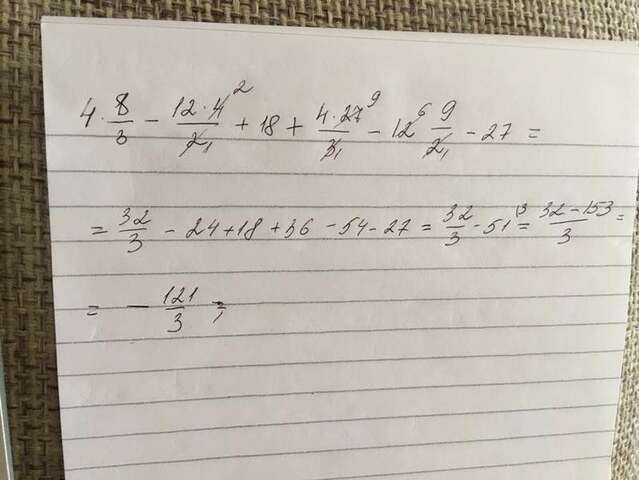 4 · 8/3 − 12 · 4²/2₁ + 18 + 4 · 27⁹/3₁ − 12⁶ 9/2₁ − 27 =
= 32/3 − 24 + 18 + 36 − 54 − 27 = 32/3 − 51⁽³ = 32 − 153/3 =
= − 121/3 ;